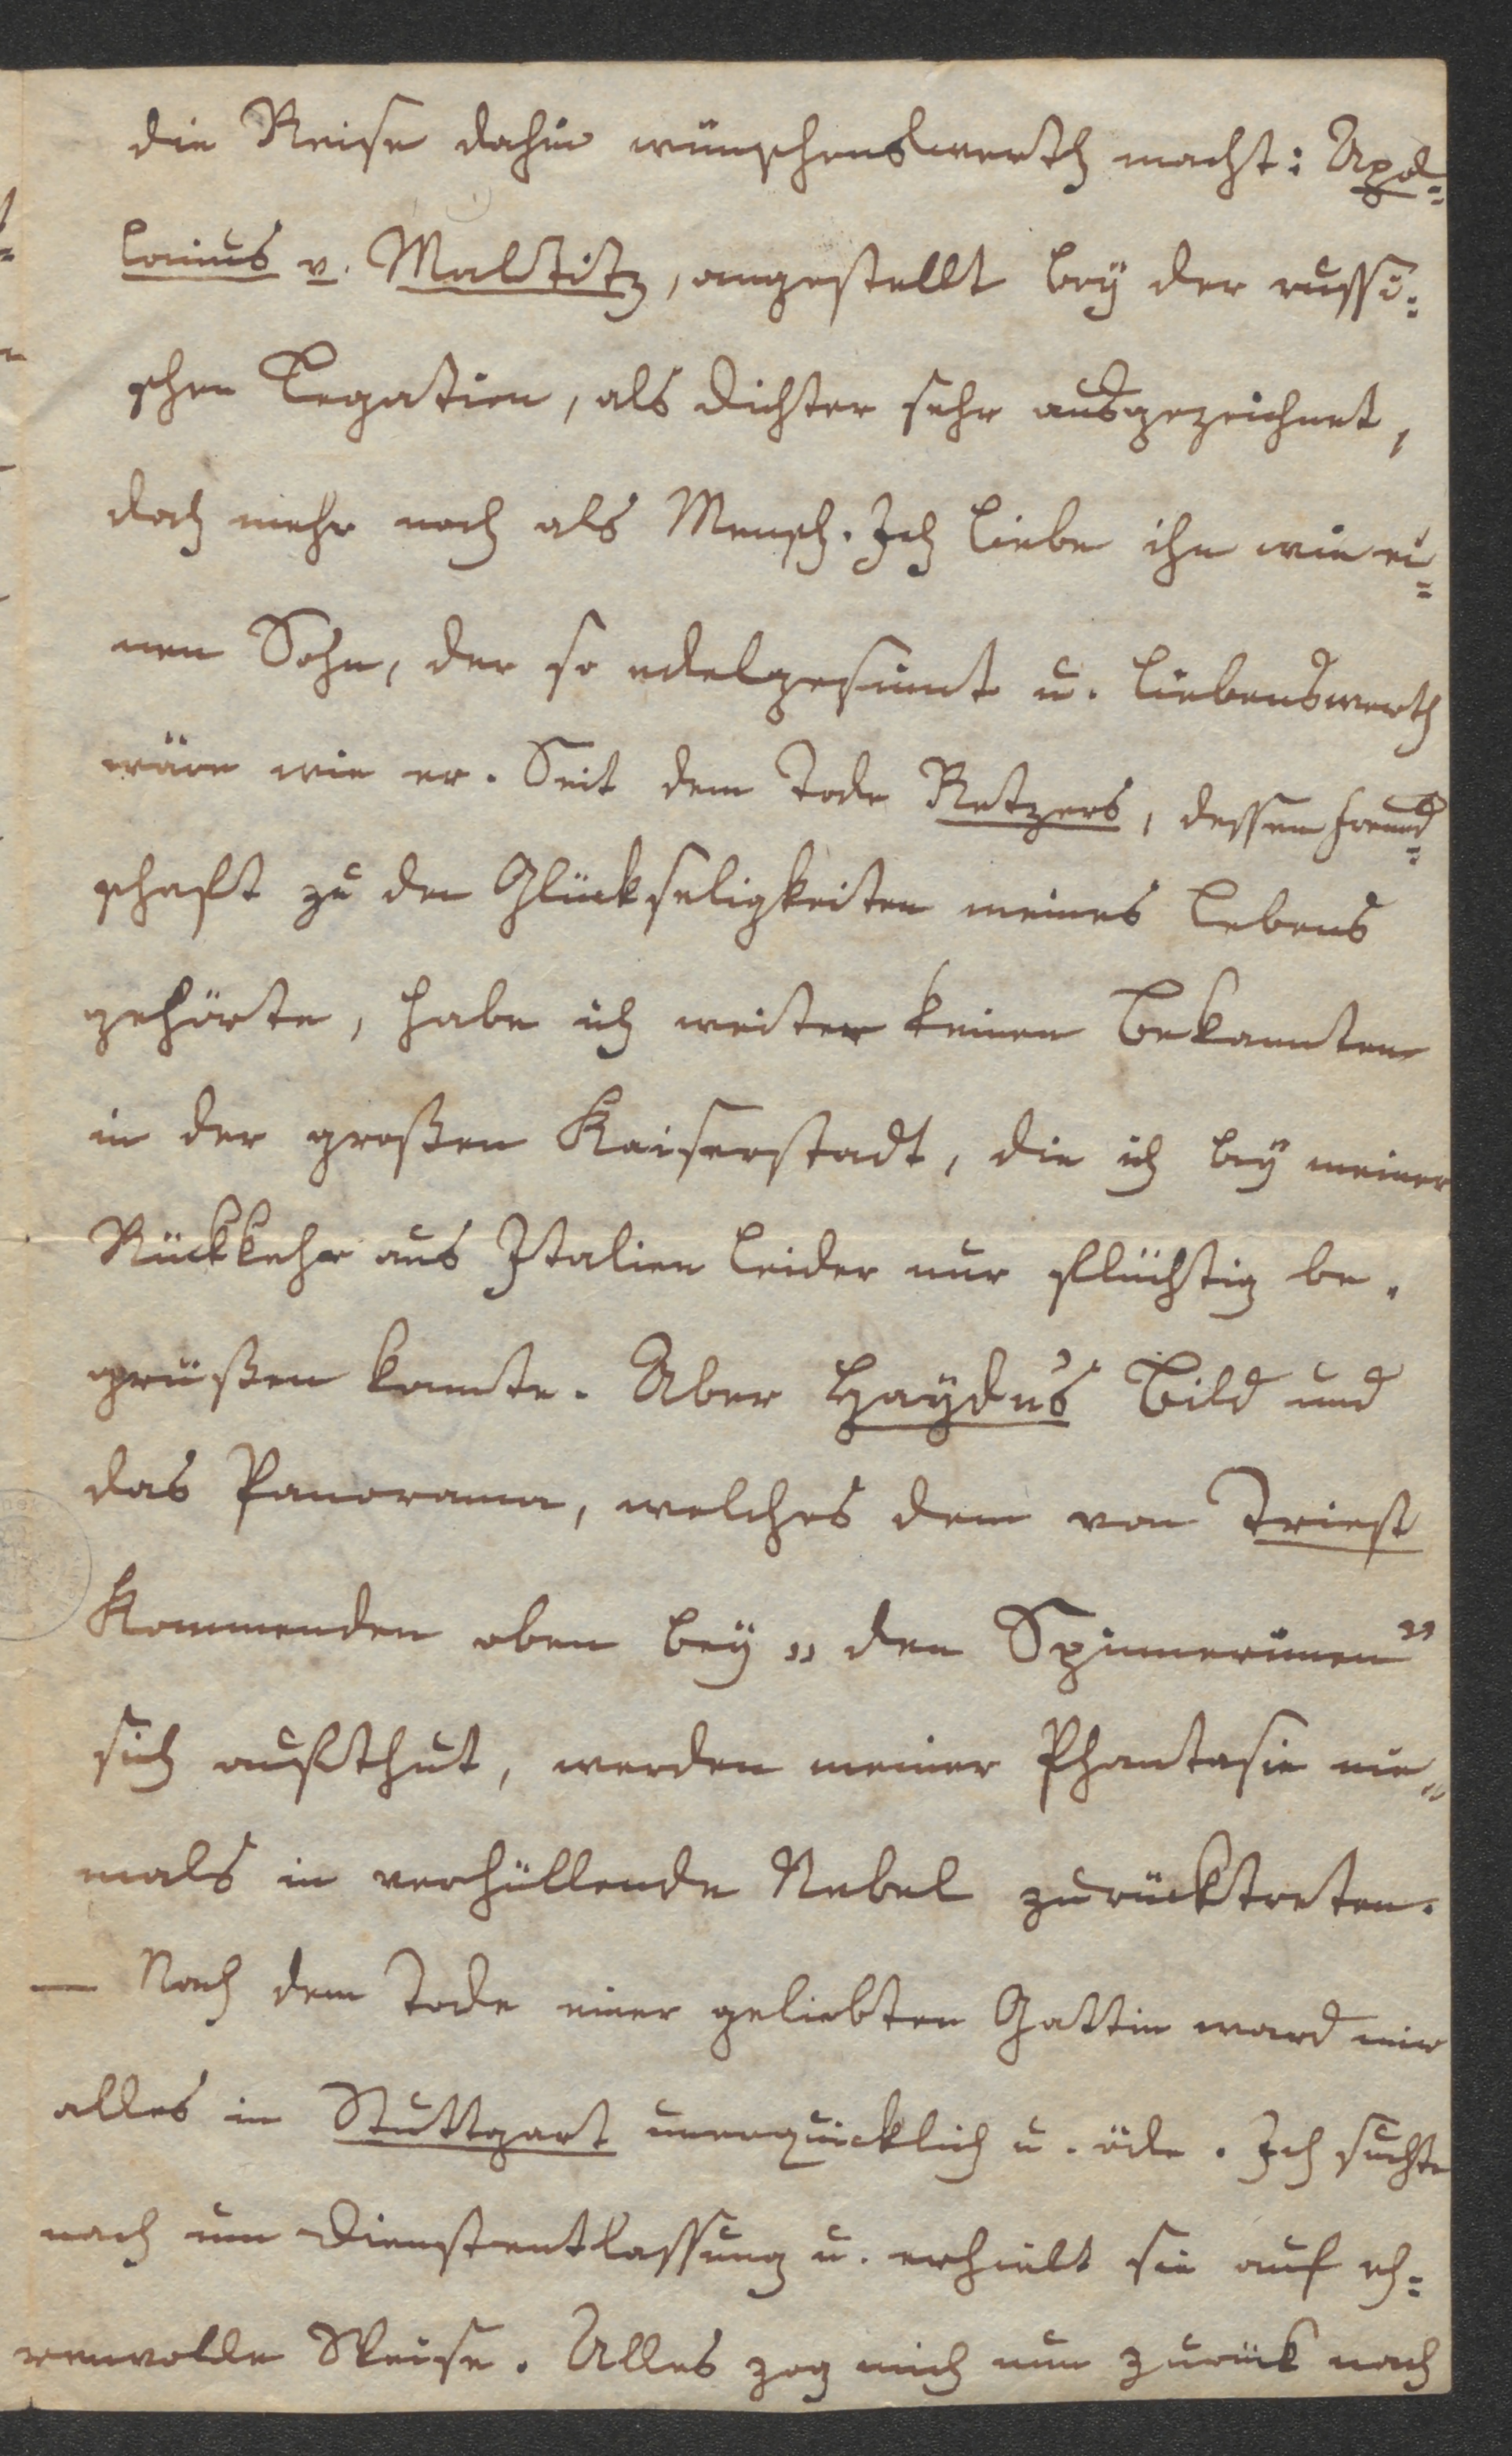 die Reise dahin wünschenswerth macht: Apol=
lonius v. Maltitz, angestellt bey der russi=
schen Legation, als Dichter sehr ausgezeichnet,
doch mehr noch als Mensch. Ich liebe ihn wie ei=
nen Sohn, der so edelgesinnt u. liebenswerth
wäre wie er. Seit dem Tode Retzers, dessen Freund=
schaft zu den Glückseligkeiten meines Lebens
gehörte, habe ich weiter keinen Bekannten
in der großen Kaiserstadt, die ich bey meiner
Rückkehr aus Italien leider nur flüchtig be=
grüßen konnte. Aber Haydn's Bild und
das Panorama, welches dem von Triest
Kommenden oben bey „den Spinnerinnen"
sich aufthut, werden meiner Phantasie nie=
mals in verhüllende Nebel zurücktreten.
— Nach dem Tode einer geliebten Gattin ward mir
alles in Stuttgart unerquicklich u. öde. Ich suchte
nach um Dienstentlassung u. erhielt sie auf eh=
renvolle Weise. Alles zog mich nun zurück nach